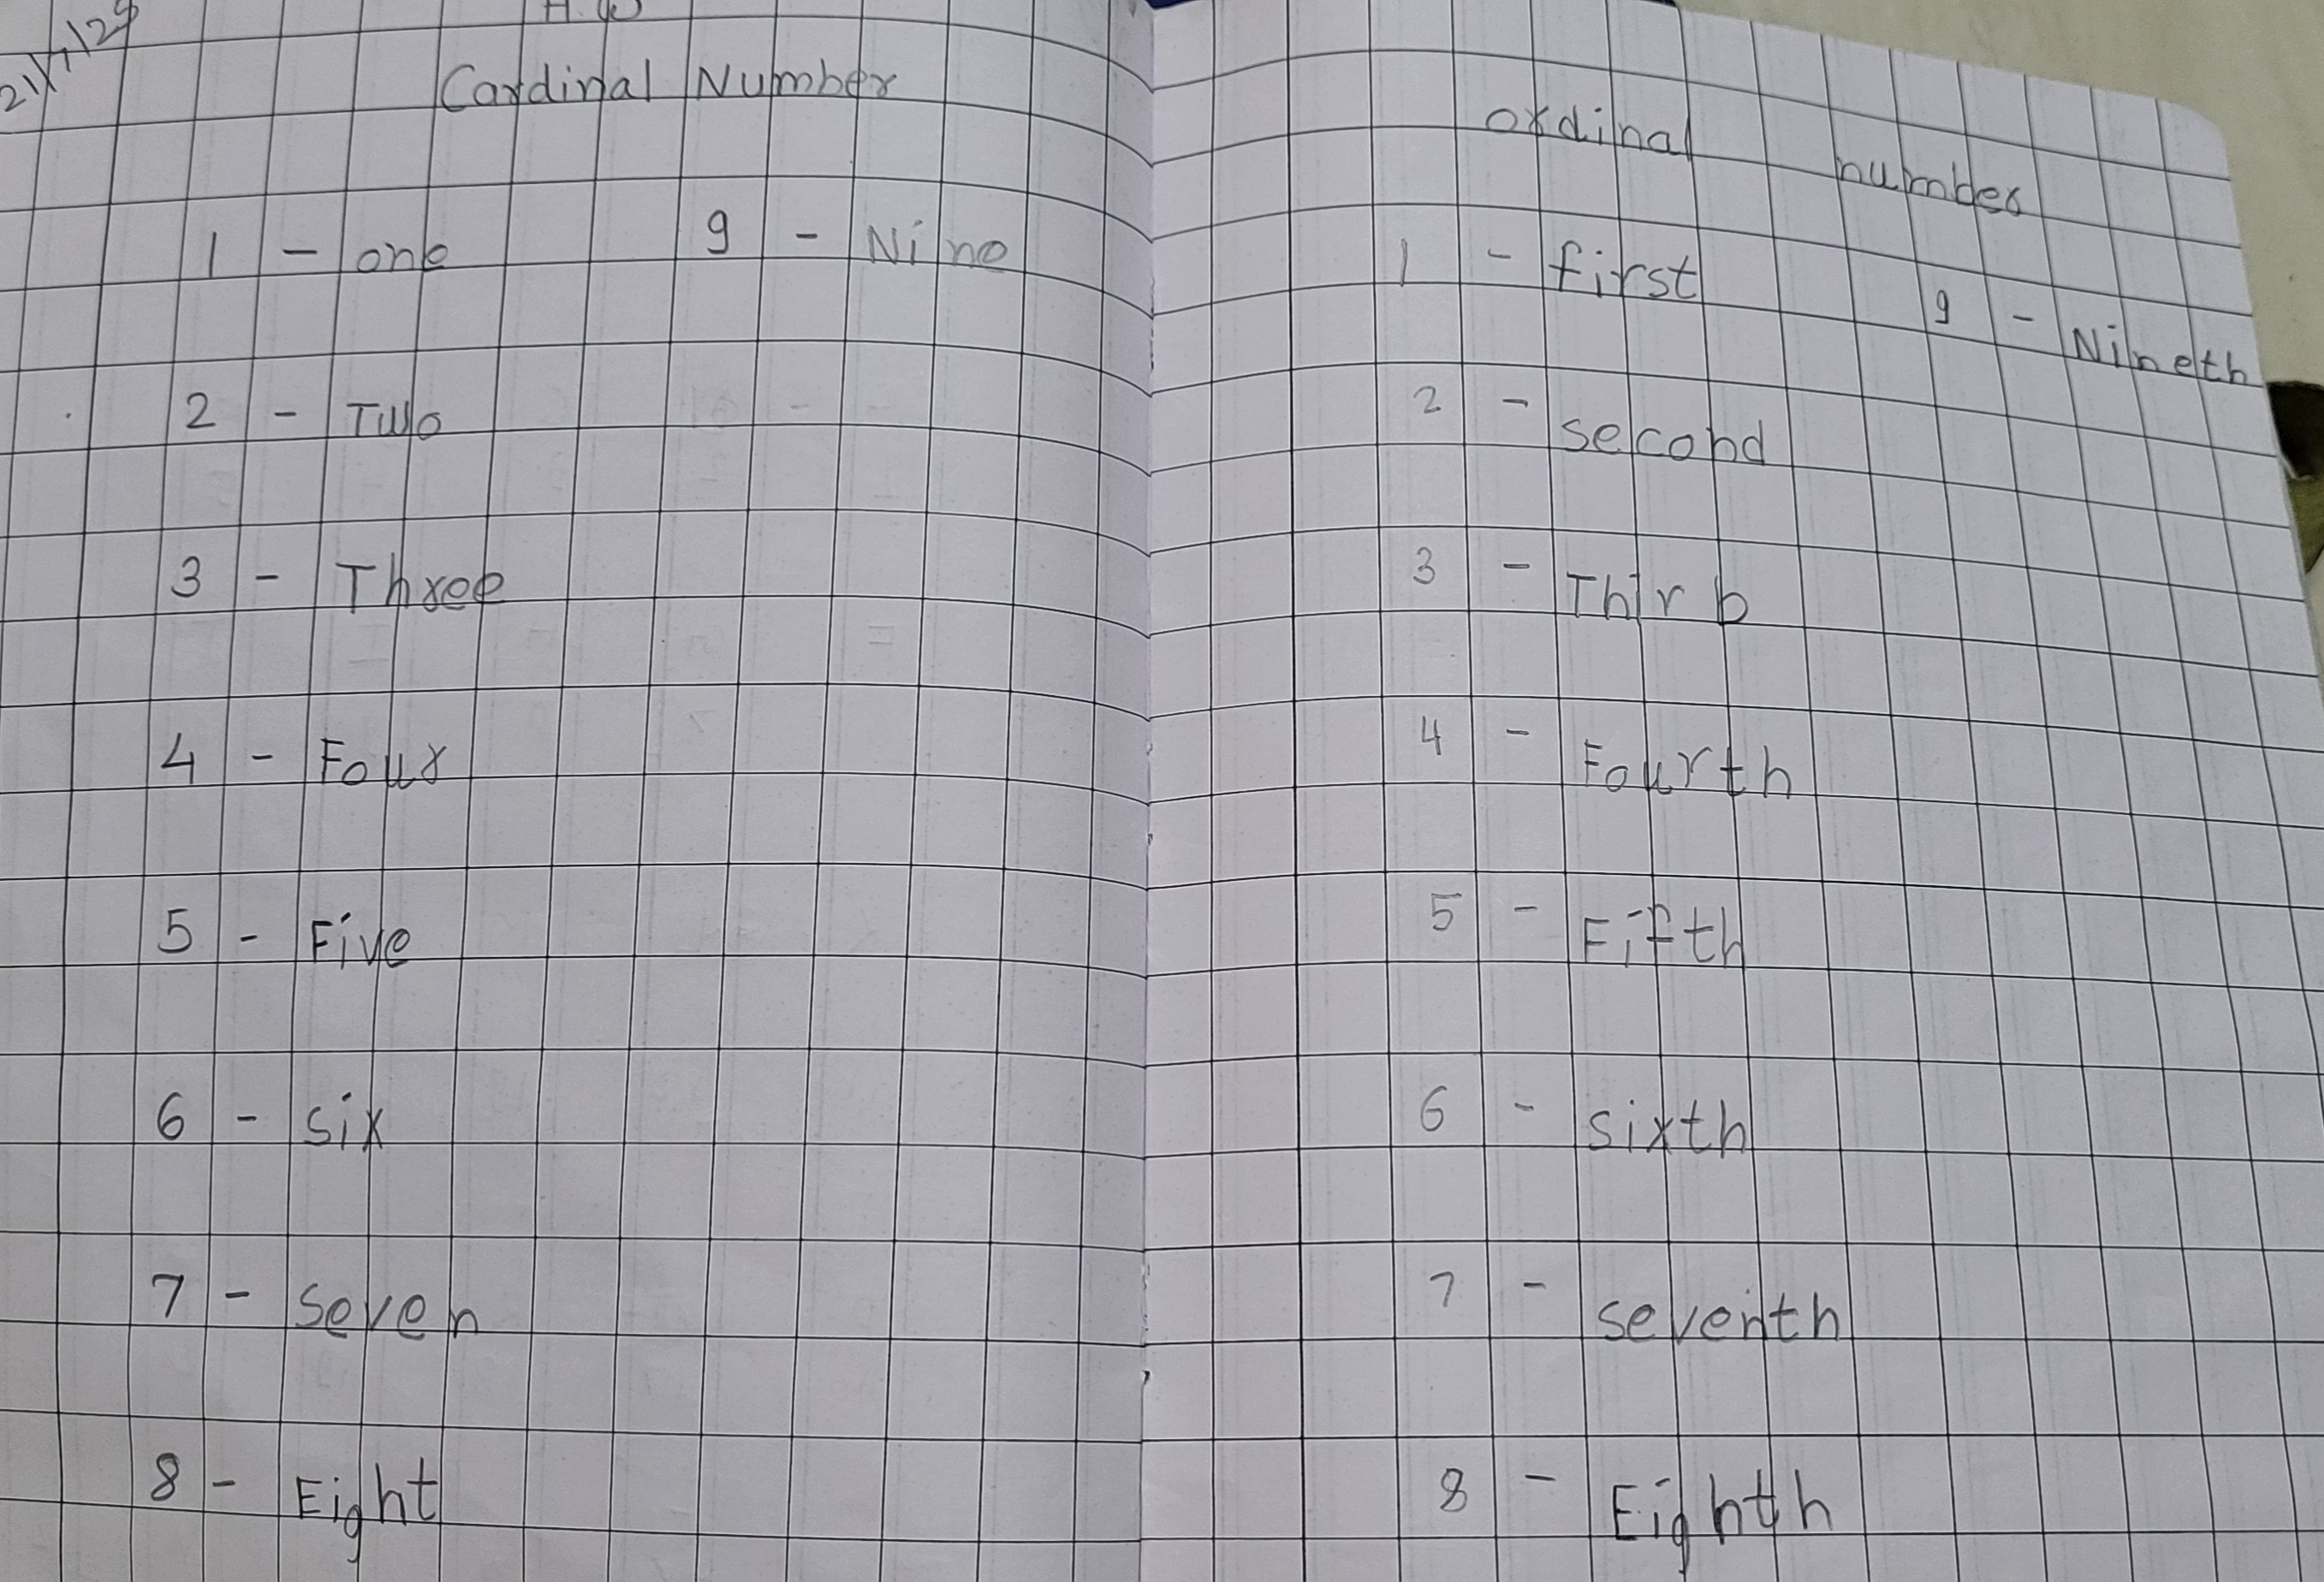 H.W
Cardinal Number
1 - one
9 - Nine
2 - Two
3 - Three
4 - Four
5 - Five
6 - Six
7 - Seven
8 - Eight
ordinal number
1 - first
9 - Nineth
2 - second
3 - Thirb
4 - Fourth
5 - Fifth
6 - sixth
7 - seventh
8 - Eighth